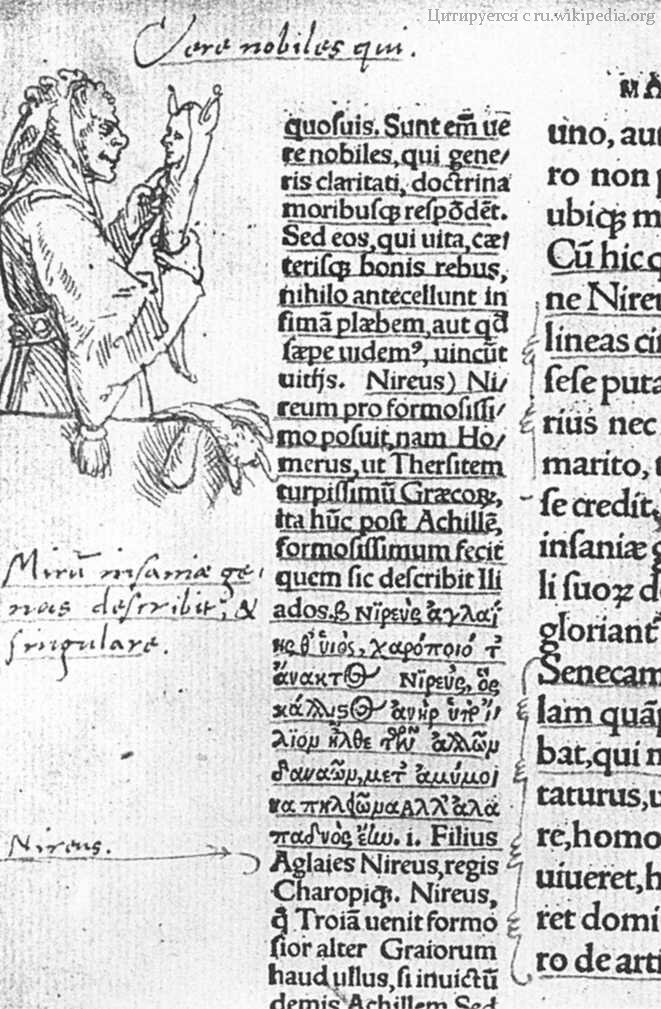 Цитируется с ru.wikipedia.org
Vere nobiles qui.
Mirū insaniæ ge⸗
nus describit, &
singulare.
Nireus.
quoſuis. Sunt em̄ ue
re nobiles, qui gene⸗
ris claritati, doctrina
moribuſqꝫ reſpōdēt.
Sed eos, qui uita, cæt
teriſqꝫ bonis rebus,
nihilo antecellunt in
fimā plæbem, aut qđ
ſæpe uidemꝰ, uincūt
uitijs. Nireus) Ni⸗
reum pro formoſiſſi⸗
mo poſuit, nam Ho⸗
merus, ut Therſitem
turpiſſimū Græcoꝝ,
ita hūc poſt Achillē,
formoſiſſimum fecit
quem ſic deſcribit Ili
ados.β Νῖρεὺς ἀγλαΐ
ης θ' ὑιὸς, χαρόποιό τ'
ἄνακτος Νῖρεὺς, ὃς
κάλλιϛος ἀνὴρ ὑπὸ ἴ
λιον ἦλθε τῶν ἄλλων
δαναῶν, μετ' ἀμύμο
να πηλείωνα Αλλ' ἀλα
παδνὸς ἔην. i. Filius
Aglaies Nireus, regis
Charopiqꝫ. Nireus,
ꝗ Troiā uenit formo
ſior alter Graiorum
haud ullus, ſi inuictū
demis Achillem Sed
MA
uno, aut
ro non p
ubiqꝫ m
Cū hic q
ne Nireu
lineas cir
ſeſe puta
rius nec
marito, t
ſe credit,
inſaniæ g
li ſuoꝝ d
gloriant᷑
Senecam
lam quāp
bat, qui n
taturus, u
re, homo
uiueret, h
ret domi
ro de arti